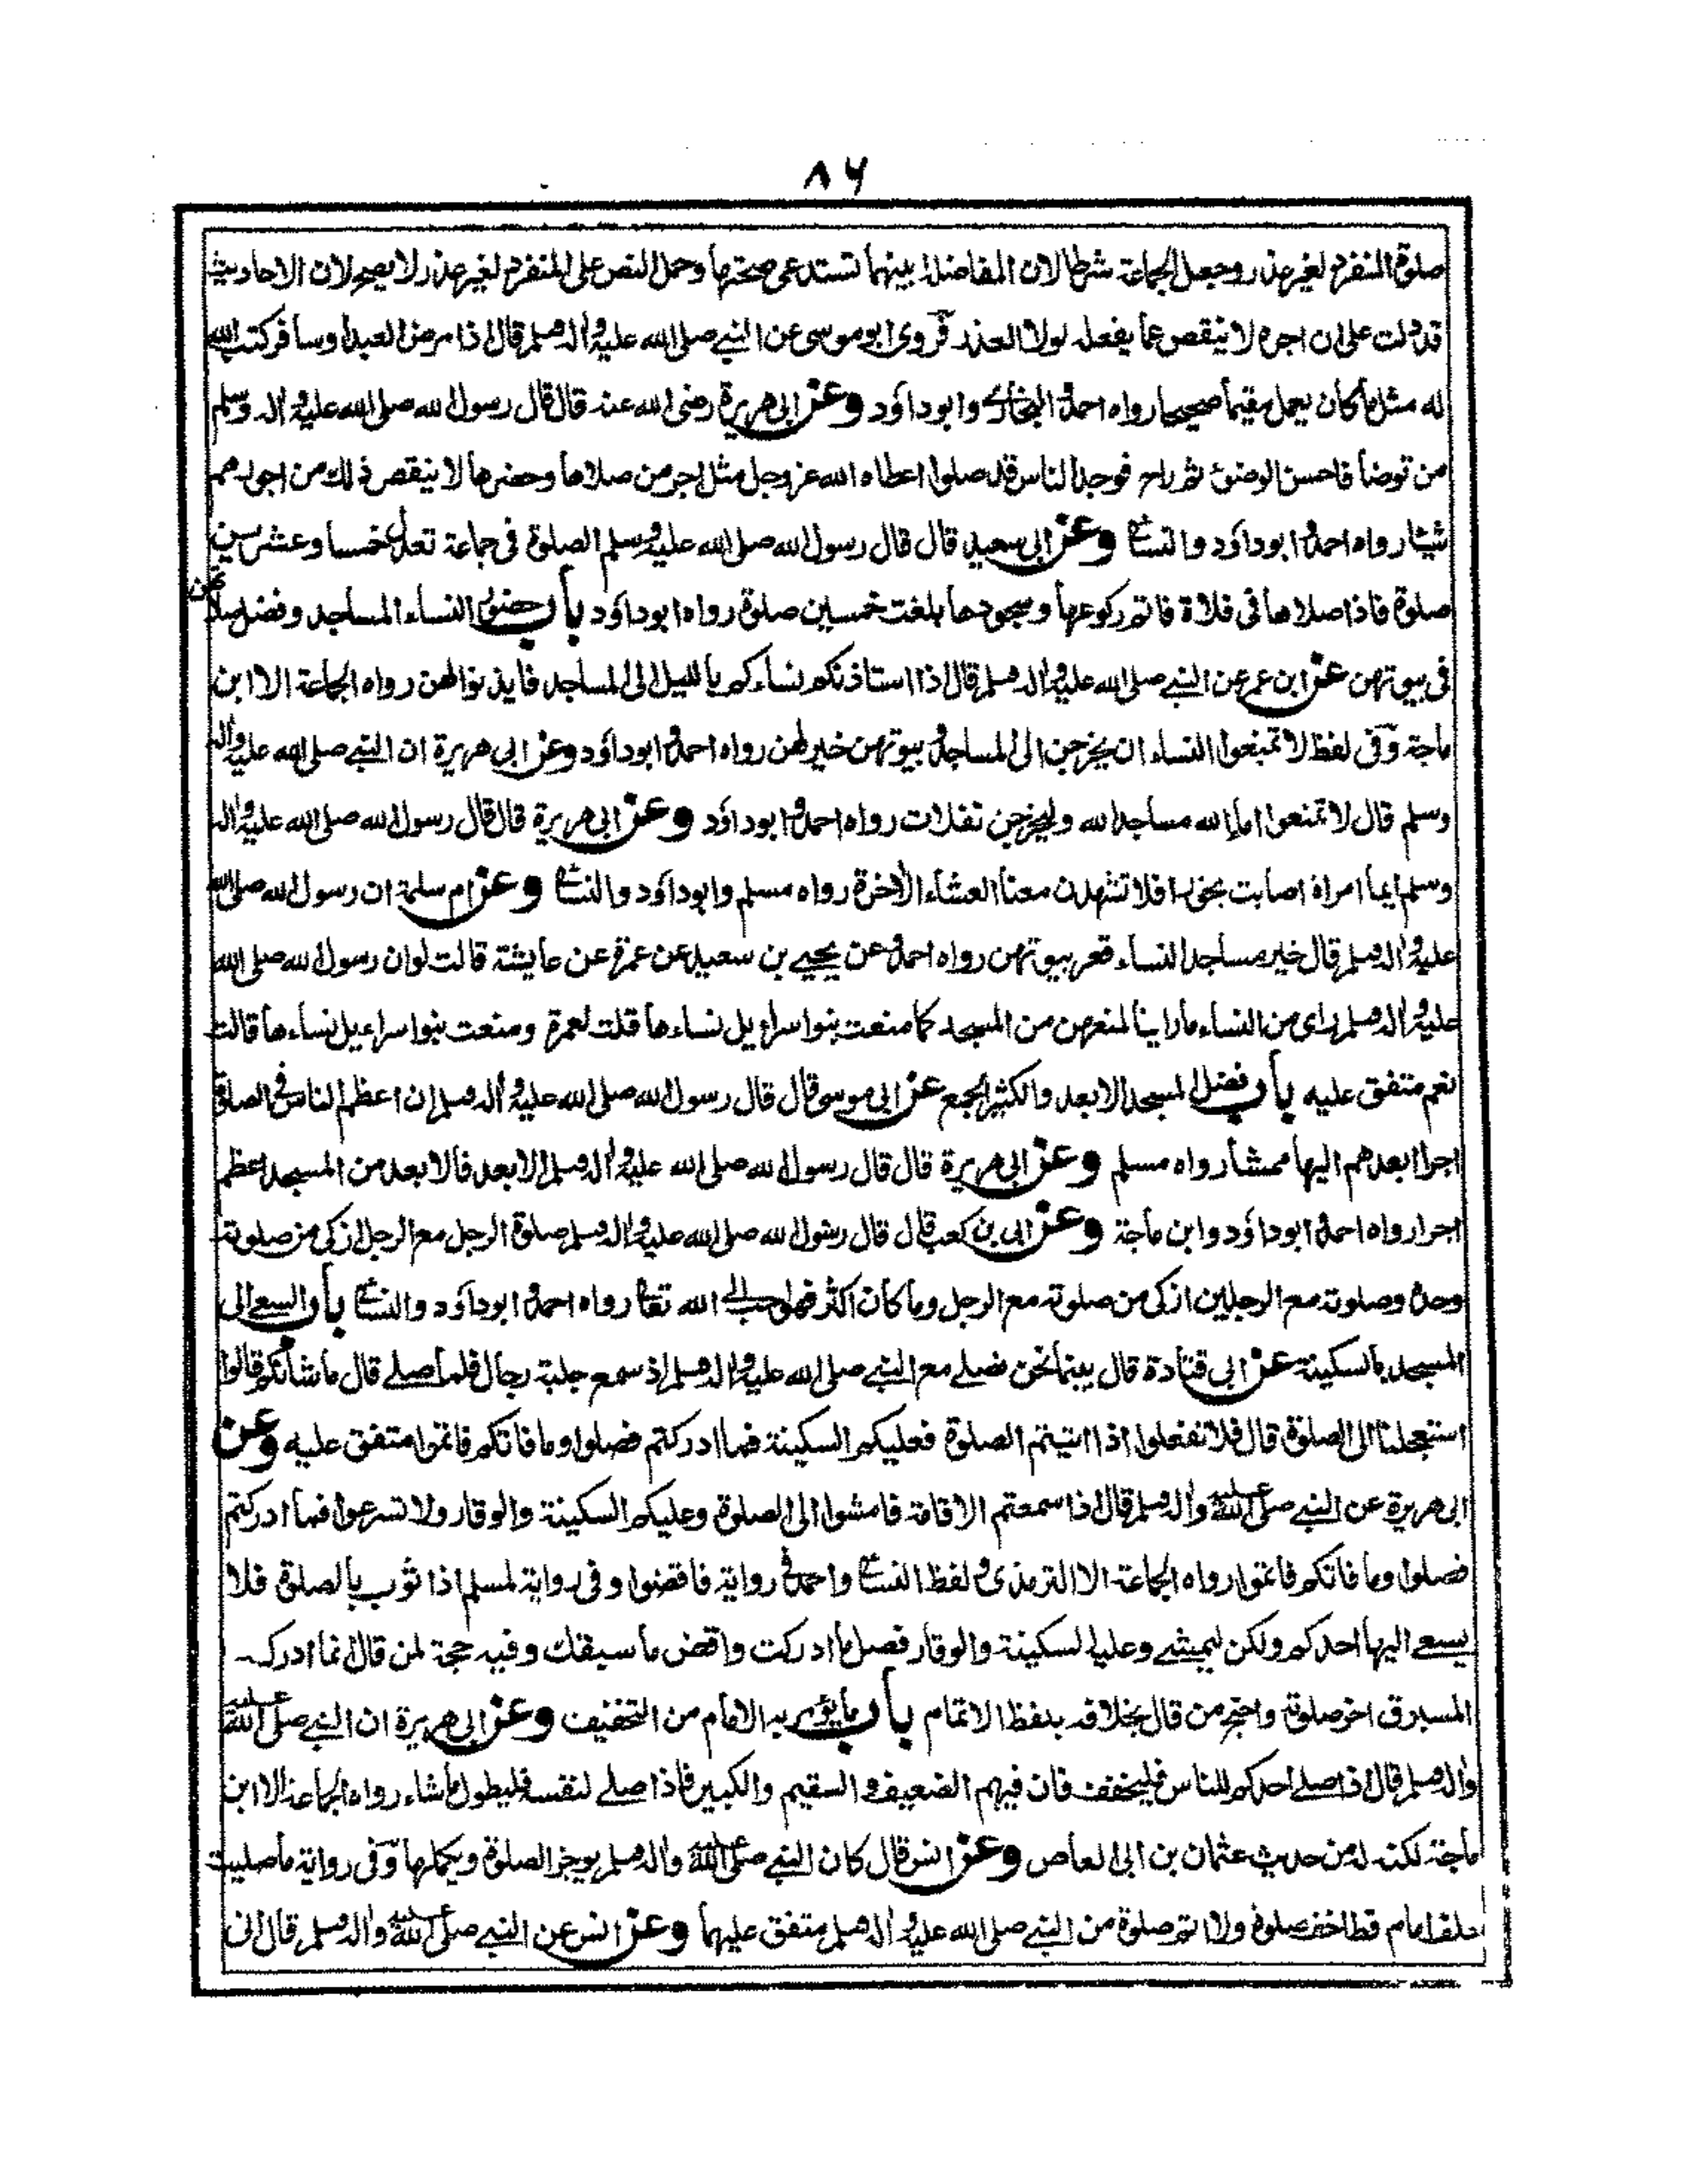 ٨٦
صلوة المنفرد لغير عذر وجعل الجماعة شرطا لان المفاضلة بينهما تستدعى صحتها وحمل النص على المنفرد لغير عذر لا يصح لان الاحاديث
قد دلت على ان اجره لا ينقص عما يفعله لولا العذر فروى ابو موسى عن النبي صلى الله عليه واله وسلم قال اذا مرض العبد او سافر كتب الله
له مثل ما كان يعمل مقيما صحيحا رواه احمد و البخاري وابو داؤد وعن ابى هريرة رضى الله عنه قال قال رسول الله صلى الله عليه واله وسلم
من توضأ فاحسن الوضوء ثم راح فوجد الناس قد صلوا اعطاه الله عز وجل مثل اجر من صلاها وحضرها لا ينقص ذلك من اجورهم
شيئا رواه احمد وابو داؤد والنسائى وعن ابى سعيد قال قال رسول الله صلى الله عليه وسلم الصلوة فى جماعة تعدل خمسا وعشرين
صلوة فاذا صلاها فى فلاة فاتم ركوعها وسجودها بلغت خمسين صلوة رواه ابو داؤد باب حضور النساء المساجد وفضل صلاتهن
فى بيوتهن عن ابن عمر عن النبي صلى الله عليه واله وسلم قال اذا استاذنكم نساءكم بالليل الى المساجد فايذنوا لهن رواه الجماعة الا ابن
ماجة وفى لفظ لا تمنعوا النساء ان يخرجن الى المساجد وبيوتهن خير لهن رواه احمد وابو داؤد وعن ابى هريرة ان النبي صلى الله عليه واله
وسلم قال لا تمنعوا اماء الله مساجد الله وليخرجن تفلات رواه احمد وابو داؤد وعن ابى هريرة قال قال رسول الله صلى الله عليه واله
وسلم ايما امراة اصابت بخورا فلا تشهدن معنا العشاء الاخرة رواه مسلم وابو داؤد والنسائى وعن ام سلمة ان رسول الله صلى الله
عليه واله وسلم قال خير مساجد النساء قعر بيوتهن رواه احمد وعن يحيى بن سعيد عن عمرة عن عايشة قالت لو ان رسول الله صلى الله
عليه واله وسلم راى من النساء ما راينا لمنعهن من المسجد كما منعت بنوا سرايل نساءها قلت لعمرة ومنعت بنوا سراءيل نساءها قالت
نعم متفق عليه باب فضل المسجد الابعد والكثير الجمع عن ابى موسى قال قال رسول الله صلى الله عليه واله وسلم ان اعظم الناس فى الصلوة
اجرا ابعدهم اليها ممشا رواه مسلم وعن ابى هريرة قال قال رسول الله صلى الله عليه واله وسلم الابعد فالابعد من المسجد اعظم
اجرا رواه احمد وابو داؤد وابن ماجة وعن ابى بن كعب قال قال رسول الله صلى الله عليه واله وسلم صلوة الرجل مع الرجل ازكى من صلوته
وحده وصلوته مع الرجلين ازكى من صلوته مع الرجل وما كان اكثر فهو احب الى الله تعالى رواه احمد وابو داؤد والنسائى باب السعى الى
المسجد بالسكينة عن ابى قتادة قال بينما نحن نصلى مع النبي صلى الله عليه واله وسلم اذ سمع جلبة رجال فلما صلى قال ما شانكم قالوا
استعجلنا الى الصلوة قال فلا تفعلوا اذا اتيتم الصلوة فعليكم السكينة فما ادركتم فصلوا وما فاتكم فاتموا متفق عليه وعن
ابى هريرة عن النبي صلى الله عليه واله وسلم قال اذا سمعتم الاقامة فامشوا الى الصلوة وعليكم السكينة والوقار ولا تسرعوا فما ادركتم
فصلوا وما فاتكم فاتموا رواه الجماعة الا الترمذى ولفظ النسائى واحمد فى رواية فاقضوا وفى رواية لمسلم اذا ثوب بالصلوة فلا
يسعى اليها احدكم ولكن ليمشى وعليه السكينة والوقار فصل ما ادركت واقض ما سبقك وفيه حجة لمن قال انما ادركه
المسبوق اخر صلوته واحتج من قال بخلافه بلفظ الاتمام باب ما يؤمر به الامام من التخفيف وعن ابى هريرة ان النبي صلى الله عليه
واله وسلم قال اذا صلى احدكم للناس فليخفف فان فيهم الضعيف والسقيم والكبير فاذا صلى لنفسه فليطول ما شاء رواه الجماعة الا ابن
ماجة لكنه له من حديث عثمان بن ابى العاص وعن انس قال كان النبي صلى الله عليه واله وسلم يوجز الصلوة ويكملها وفى رواية ما صليت
خلف امام قط اخف صلوة ولا اتم صلوة من النبي صلى الله عليه واله وسلم متفق عليهما وعن انس عن النبي صلى الله عليه واله وسلم قال انى